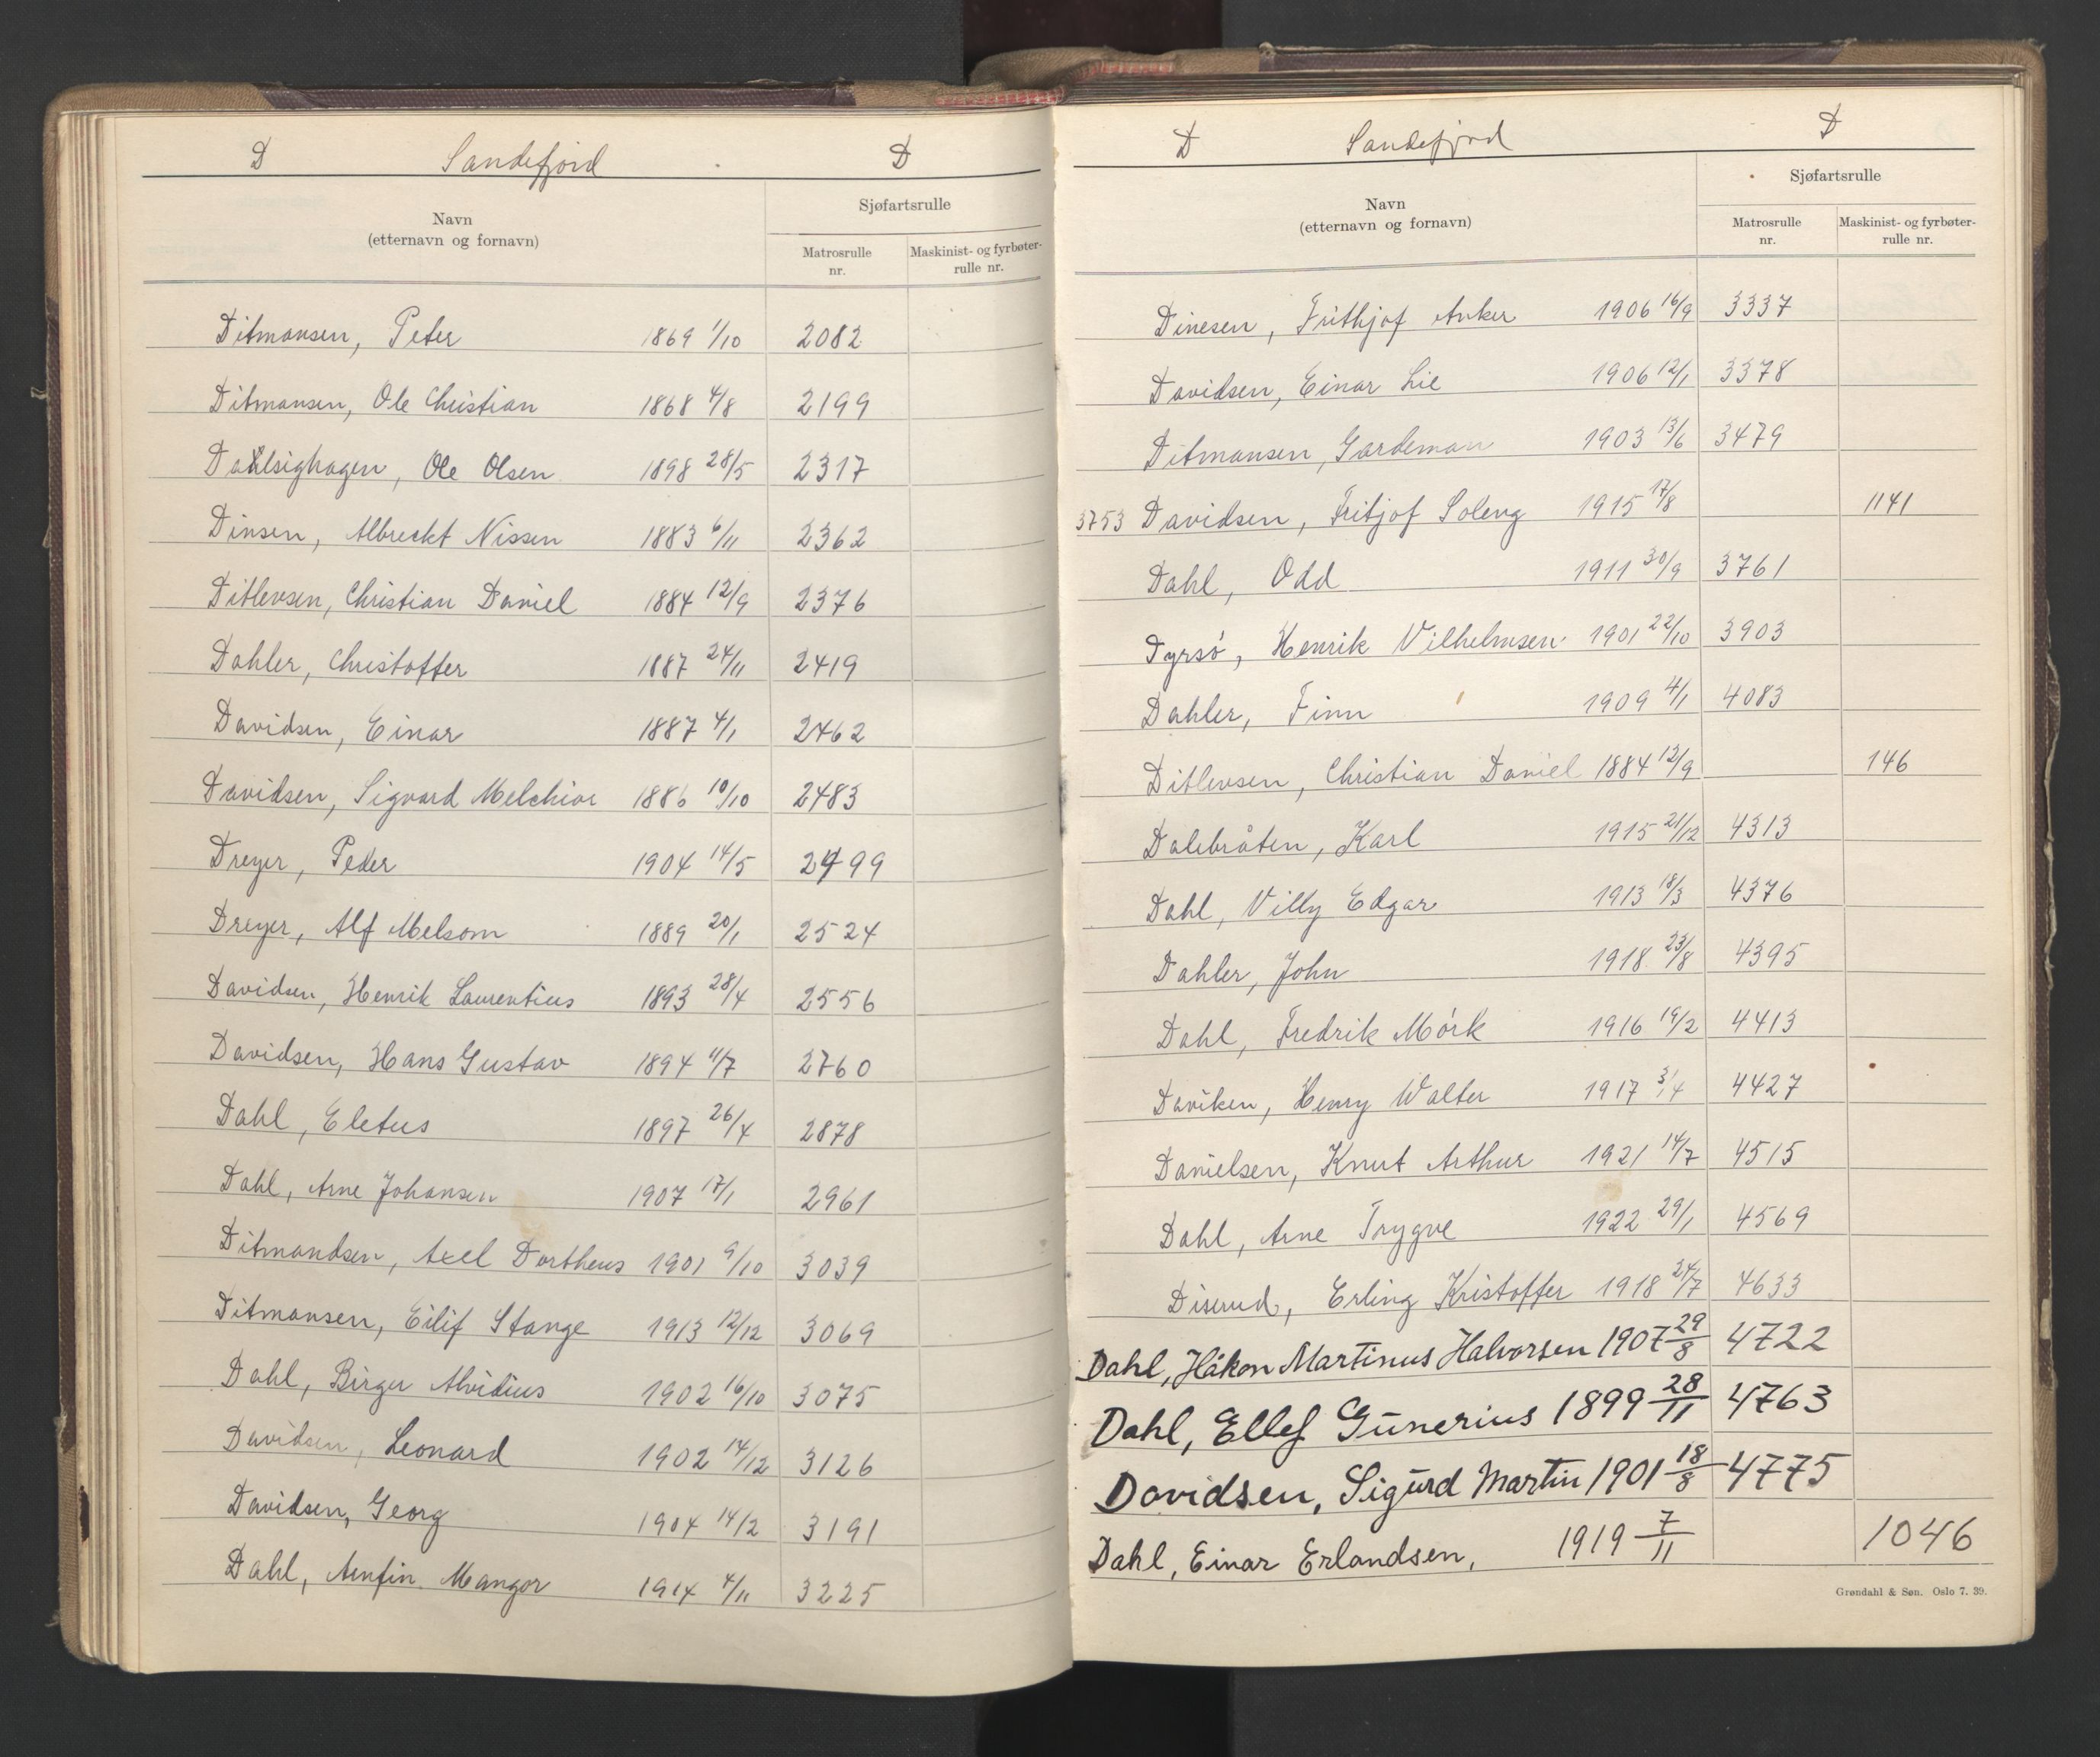 D Sandefjord D
Navn
(etternavn og fornavn)
Sjøfartsrulle
Matrosrulle
nr.
Maskinist- og fyrbøter-
rulle nr.
Ditmansen, Peter 1869 1/10 2082
Ditmansen, Ole Christian 1868 4/8 2199
Dahlsighagen, Ole Olsen 1898 28/5 2317
Dinsen, Albreckt Nissen 1883 6/11 2362
Ditlevsen, Christian Daniel 1884 12/9 2376
Dahler, Christoffer 1887 24/11 2419
Davidsen, Einar 1887 4/1 2462
Davidsen, Sigvard Melchior 1886 10/10 2483
Dreyer, Peder 1904 14/5 2499
Dreyer, Alf Melsom 1889 20/1 2524
Davidsen, Henrik Laurentius 1893 28/4 2556
Davidsen, Hans Gustav 1894 11/7 2760
Dahl, Eletus 1897 26/4 2878
Dahl, Arne Johansen 1907 17/1 2961
Ditmandsen, Axel Dortheus 1901 9/10 3039
Ditmansen, Eilif Stange 1913 12/12 3069
Dahl, Birger Alvidius 1902 16/10 3075
Davidsen, Leonard 1902 14/12 3126
Davidsen, Georg 1904 14/2 3191
Dahl, Arnfin Mangor 1914 4/11 3225
D Sandefjord D
Navn
(etternavn og fornavn)
Sjøfartsrulle
Matrosrulle
nr.
Maskinist- og fyrbøter-
rulle nr.
Dinesen, Frithjof Anker 1906 16/9 3337
Davidsen, Einar Lie 1906 12/1 3378
Ditmansen, Gardeman 1903 13/6 3479
3753 Davidsen, Fritjof Soleng 1915 17/8 1141
Dahl, Odd 1911 30/9 3761
Dyrsø, Henrik Vilhelmsen 1901 22/10 3903
Dahler, Finn 1909 4/1 4083
Ditlevsen, Christian Daniel 1884 12/9 146
Dalebråten, Karl 1915 21/12 4313
Dahl, Villy Edgar 1913 18/3 4376
Dahler, John 1918 23/8 4395
Dahl, Fredrik Mørk 1916 19/2 4413
Daviken, Henry Walter 1917 3/4 4427
Danielsen, Knut Arthur 1921 14/7 4515
Dahl, Arne Trygve 1922 29/1 4569
Diserud, Erling Kristoffer 1918 24/7 4633
Dahl, Håkon Martinus Halvorsen 1907 29/8 4722
Dahl, Ellef Gunerius 1899 28/11 4763
Davidsen, Sigurd Martin 1901 18/8 4775
Dahl, Einar Erlandsen, 1919 7/11 1046
Grøndahl & Søn. Oslo 7. 39.